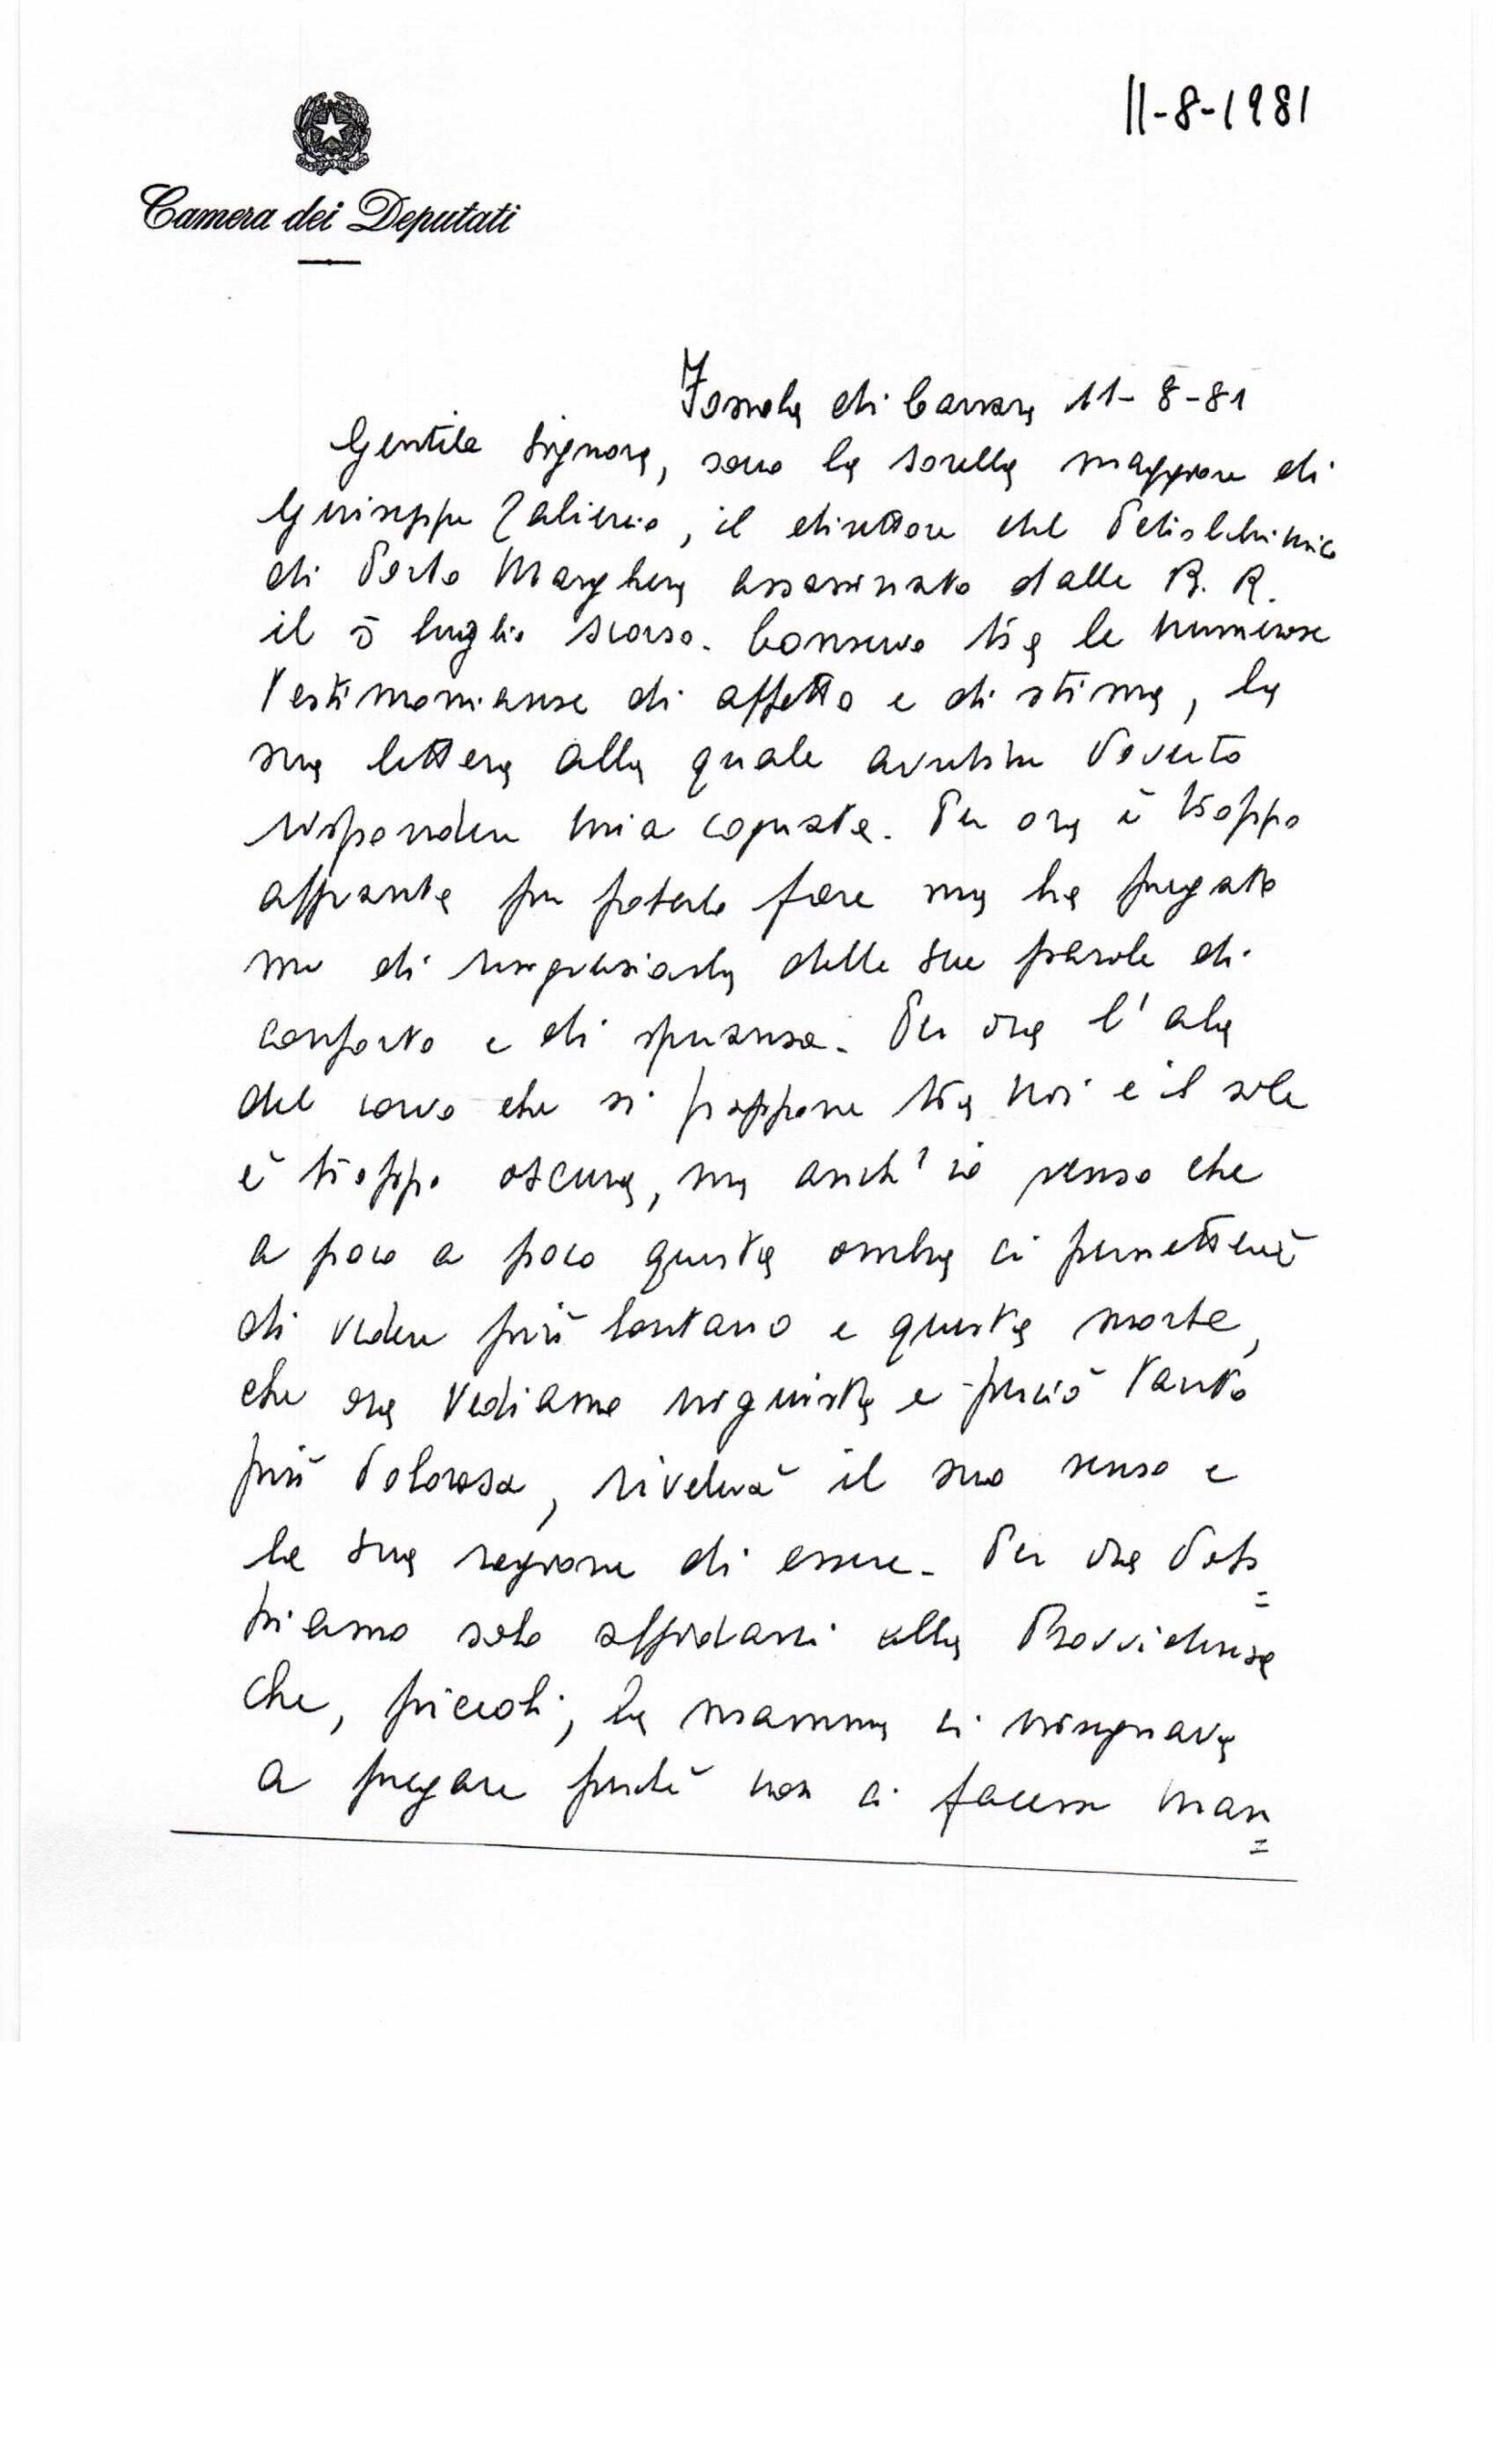 11-8-1981
Camera dei Deputati
Fossola di Carrara 11-8-81
Gentile Signora, sono la sorella maggiore di
Giuseppe Taliercio, il direttore del Petrolchimico
di Porto Marghera assassinato dalle B. R.
il 5 luglio scorso. Conservo tra le numerose
testimonianze di affetto e di stima, la
sua lettera alla quale avrebbe dovuto
rispondere mia cognata. Per ora è troppo
affranta per poterlo fare ma ha pregato
me di ringraziarla delle sue parole di
conforto e di speranza. Per ora l'ala
del corvo che si frappone tra noi e il sole
è troppo oscura, ma anch'io penso che
a poco a poco questa ombra ci permetterà
di vedere più lontano e questa morte,
che ora vediamo ingiusta e perciò tanto
più dolorosa, rivelerà il suo senso e
la sua ragione di essere. Per ora dob=
biamo solo affidarci alla Provvidenza
che, piccoli, la mamma ci insegnava
a pregare perché non ci facesse man=